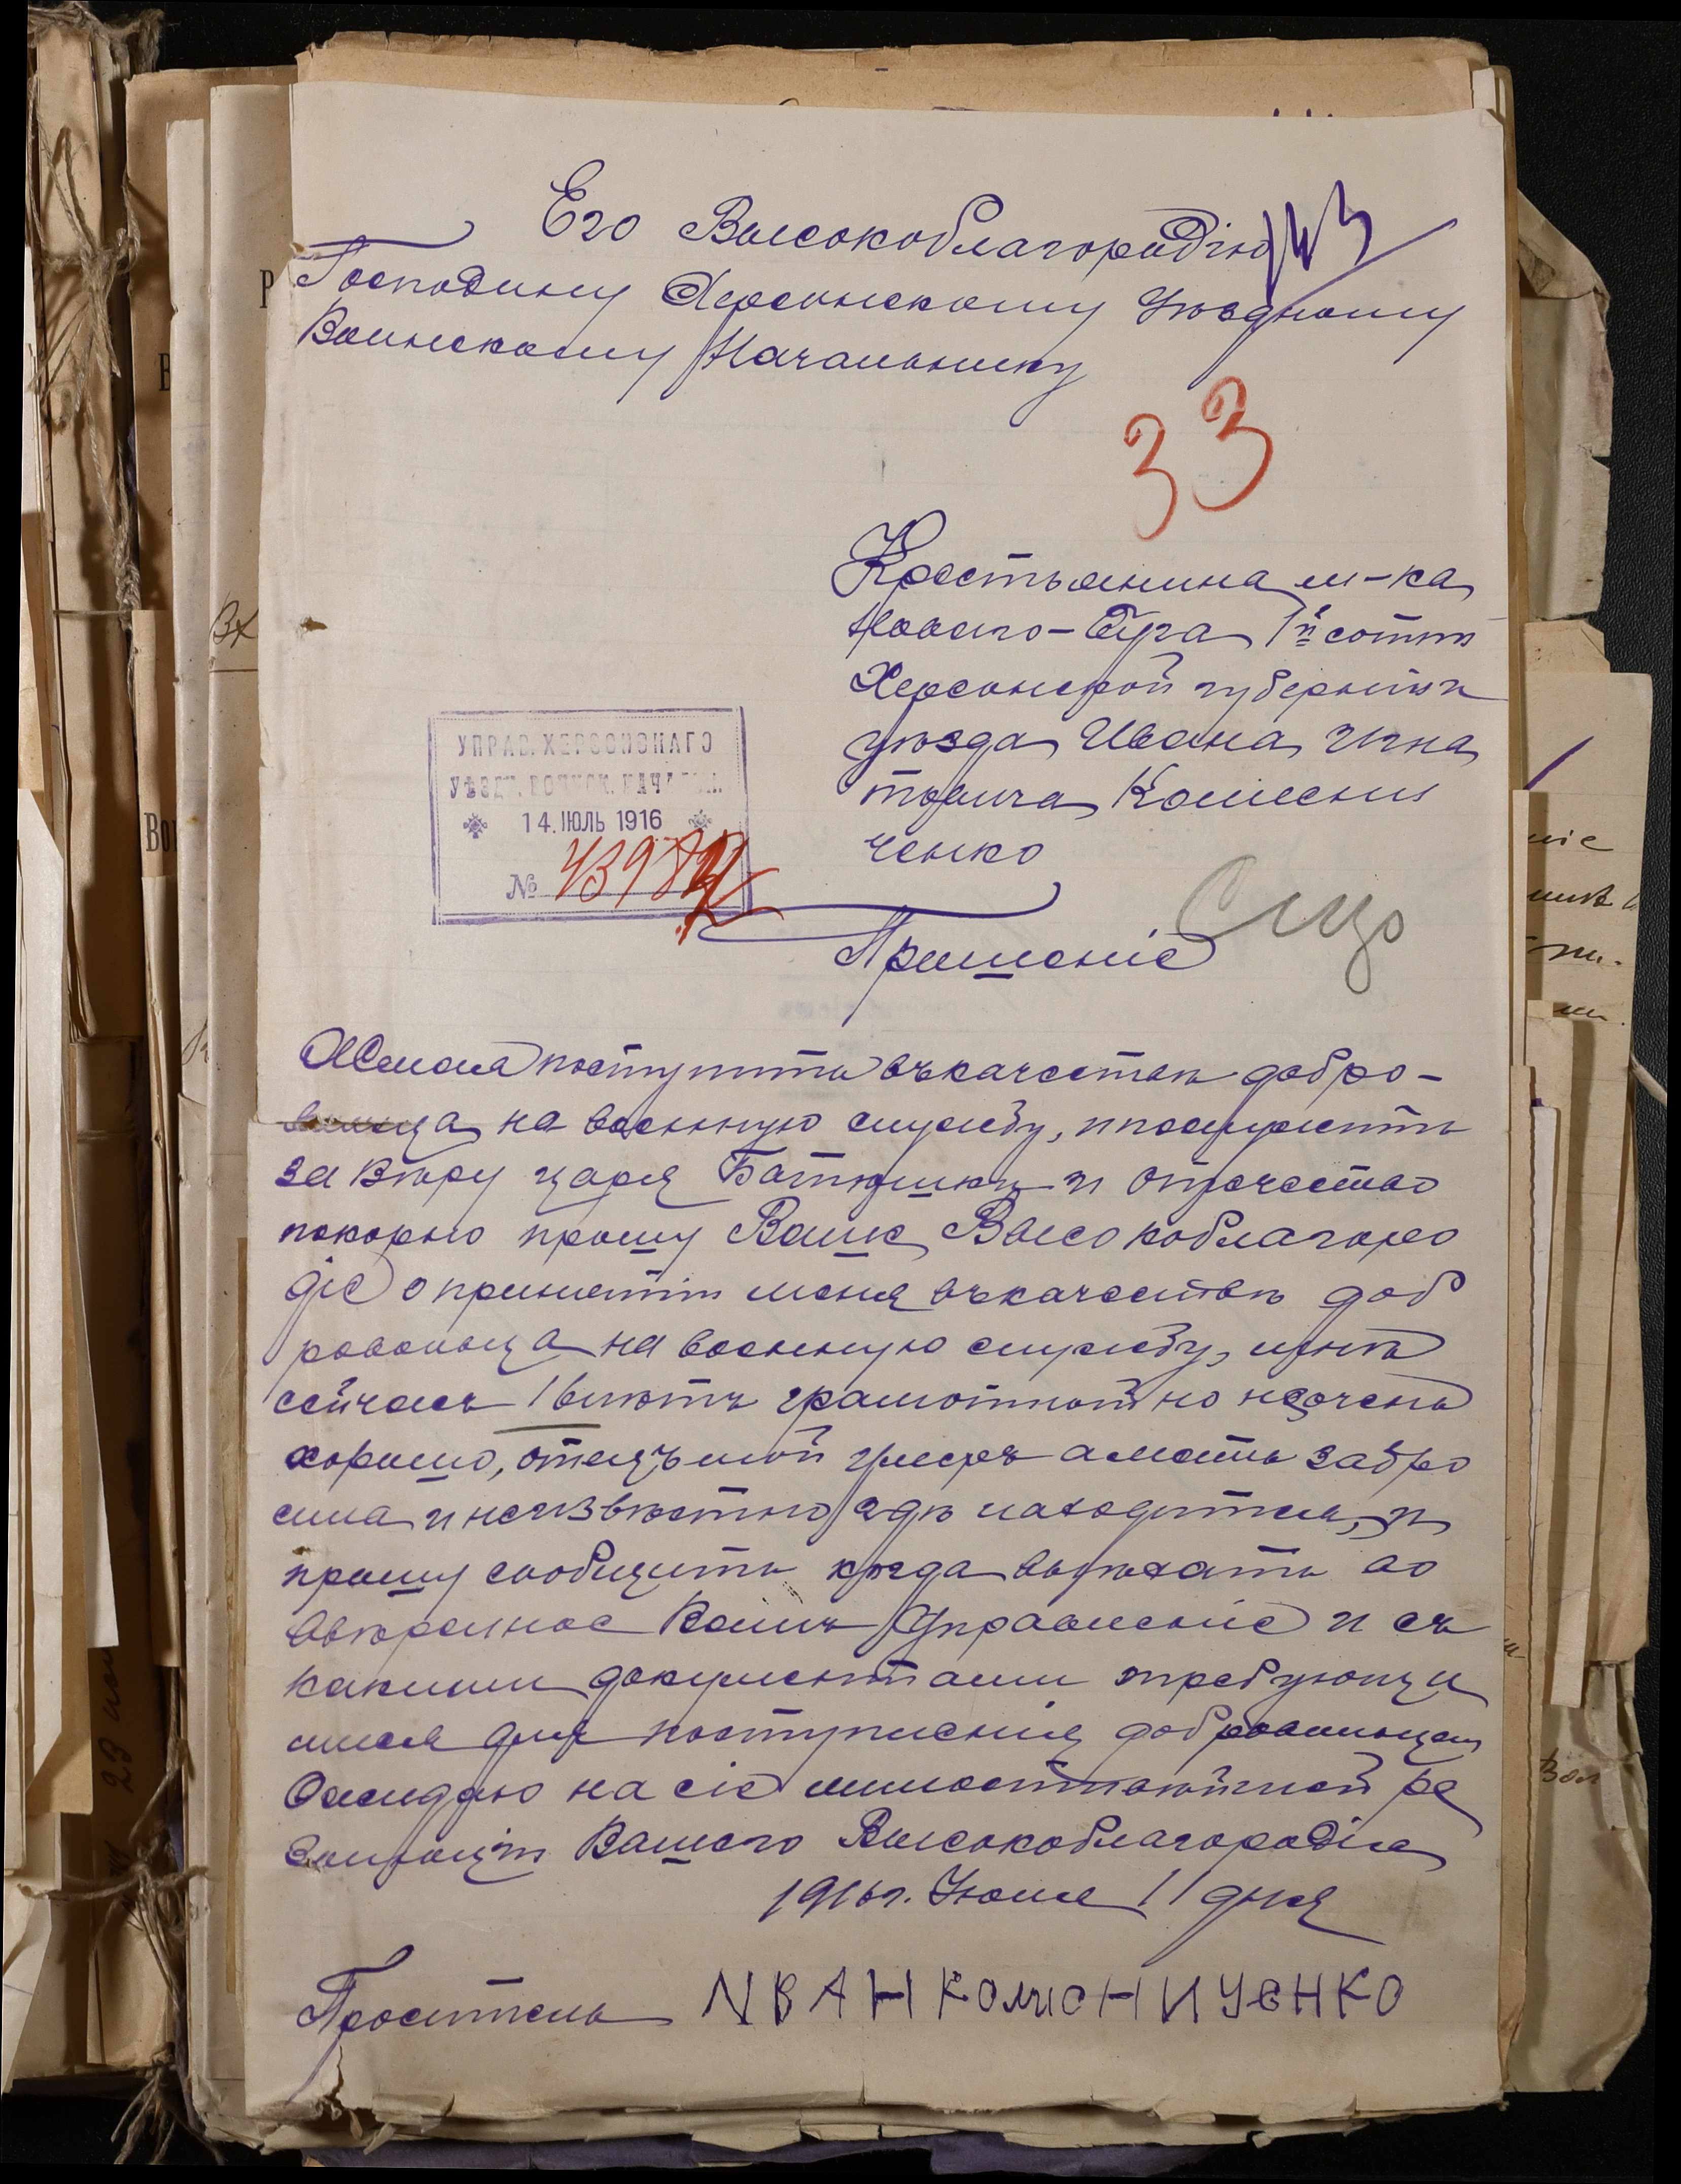 Его Высокоблагородію
Господину Херсонскому Уѣздному
Воинскому Начальнику
33
Крестьянина м-ка
Новаго-Буга 1й сотни
Херсонской губерніи и
уѣзда Ивана Игна
тьевича Коліесни
ченко
УПРАВ. ХЕРСОНСКАГО
УѢЗДН. ВОИНСК. НАЧАЛЬН.
14. ІЮЛЬ 1916
№
Прошеніе
Желая поступить въ качествѣ добро-
вольца на военную службу, и послужить
за Вѣру царя Батюшки и отечество
покорно прошу Ваше Высокоблагоро
діе о принятіи меня въ качествѣ доб
ровольца на военную службу, мнѣ
сейчасъ 16 лѣтъ грамотный но не очень
хорошо, отецъ мой умеръ а мать забро
сила и неизвѣстно гдѣ находится, и
прошу сообщить когда выѣхать во
ввѣренное Вамъ Управленіе и съ
какими документами требующи
мися для поступленія добровольцем
Ожидаю на сіе милостивѣйшей ре
золюціи Вашего Высокоблагородія
1916 г. Іюля 11 дня
Проситель ИВАН КОЛИСНИЧЕНКО